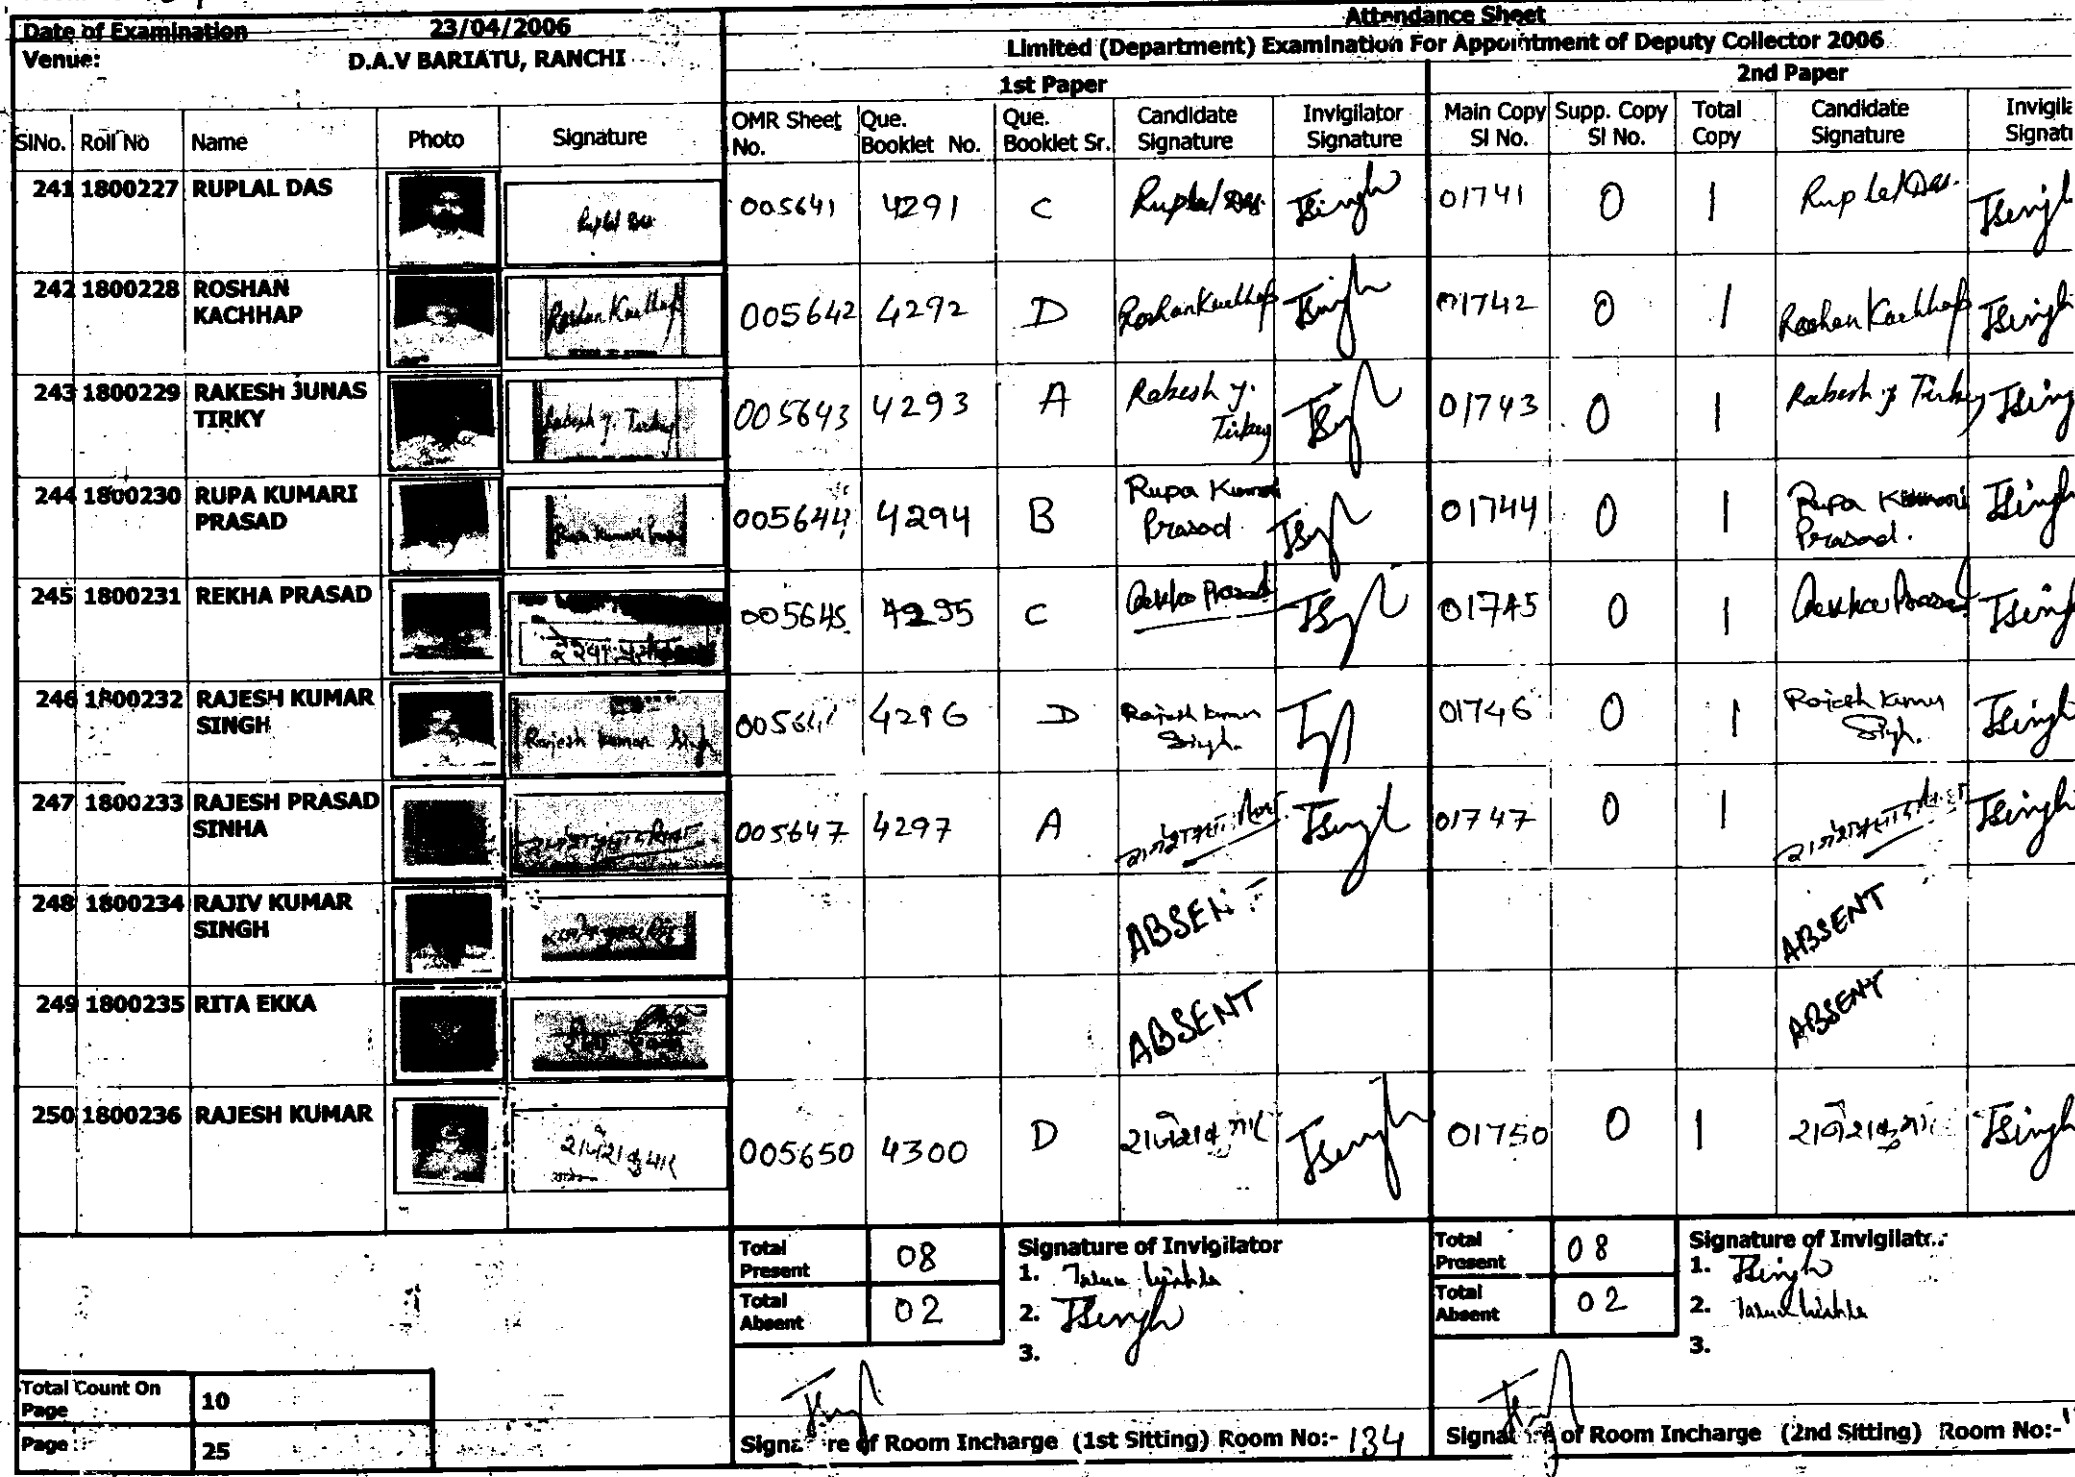 Attendance Sheet
Date of Examination 23/04/2006
Limited (Department) Examination For Appointment of Deputy Collector 2006
Venue: D.A.V BARIATU, RANCHI
1st Paper 2nd Paper
SlNo. Roll No Name Photo Signature OMR Sheet No. Que. Booklet No. Que. Booklet Sr. Candidate Signature Invigilator Signature Main Copy Sl No. Supp. Copy Sl No. Total Copy Candidate Signature
241 1800227 RUPLAL DAS Ruplal Das 005641 4291 C Ruplal Das. TSingh 01741 0 1 Ruplal Das. TSingh
242 1800228 ROSHAN KACHHAP Roshan Kachhap 005642 4292 D Roshan Kachhap TSingh 01742 0 1 Roshan Kachhap TSingh
243 1800229 RAKESH JUNAS TIRKY Rakesh J. Tirkey 005643 4293 A Rakesh J. Tirkey 01743 0 1 Rakesh J Tirkey TSing
244 1800230 RUPA KUMARI PRASAD Rupa Kumari Prasad 005644 4294 B Rupa Kumari Prasad 01744 0 1 Rupa Kumari Prasad. TSingh
245 1800231 REKHA PRASAD रेखा प्रसाद 005645 4295 C Rekha Prasad 01745 0 1 Rekha Prasad TSing
246 1800232 RAJESH KUMAR SINGH Rajesh Kumar Singh 4296 D Rajesh Kumar Singh. 01746 0 1 Rajesh Kumar Singh. TSingh
247 1800233 RAJESH PRASAD SINHA 005647 4297 A TSingh 01747 0 1 TSingh
248 1800234 RAJIV KUMAR SINGH ABSENT ABSENT
249 1800235 RITA EKKA ABSENT ABSENT
250 1800236 RAJESH KUMAR राजेश कुमार 005650 4300 D राजेश कुमार TSingh 01750 0 1 राजेश कुमार TSingh
Total Present 08 Signature of Invigilator Total Present 08
1. 1. TSingh
Total Absent 02 2. TSingh Total Absent 02 2.
3. 3.
Total Count On Page 10
Page : 25
of Room Incharge (1st Sitting) Room No:- 134 of Room Incharge (2nd Sitting) Room No:-